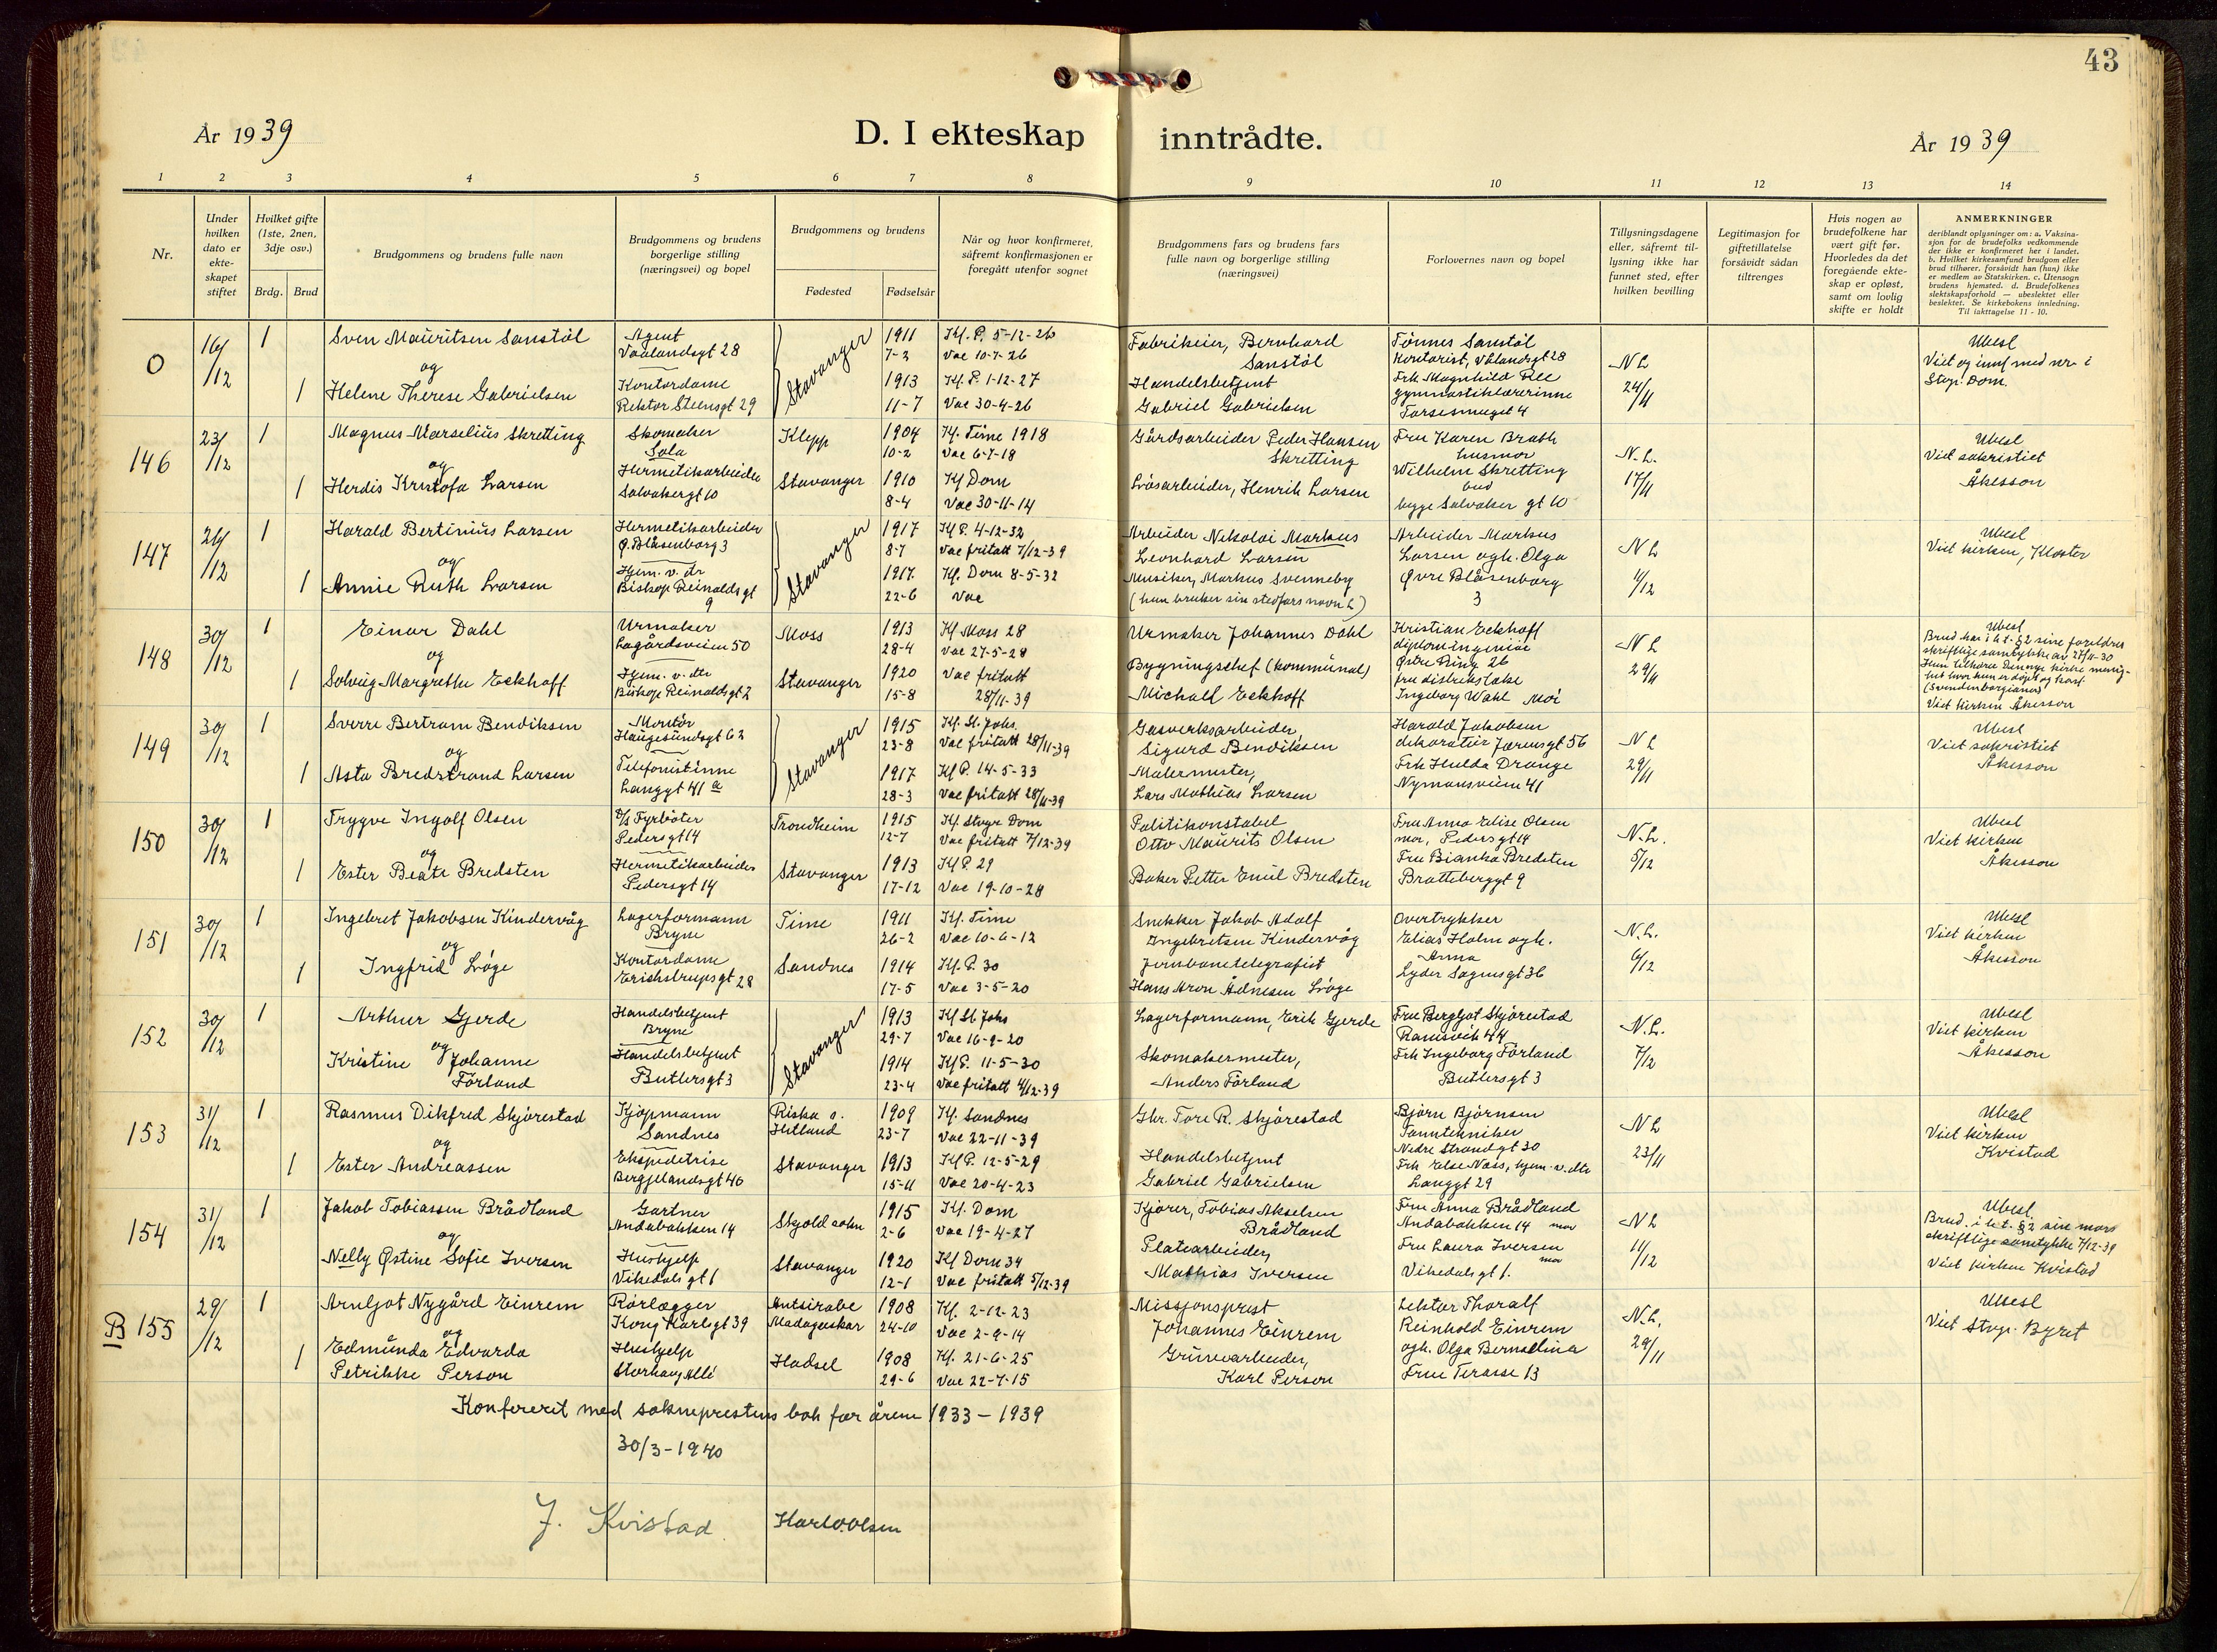 43
År 1939
D. I ekteskap inntrådte.
År 1939
1 2 3 4 5 6 7 8 9 10 11 12 13 14
Nr.
Under hvilken dato er ekte-skapet stiftet
Hvilket gifte (1ste, 2nen, 3dje osv.)
Brdg. Brud
Brudgommens og brudens fulle navn
Brudgommens og brudens borgerlige stilling (næringsvei) og bopel
Brudgommens og brudens
Fødested Fødselsår
Når og hvor konfirmeret, såfremt konfirmasjonen er foregått utenfor sognet
Brudgommens fars og brudens fars fulle navn og borgerlige stilling (næringsvei)
Forlovernes navn og bopel
Tillysningsdagene eller, såfremt til-lysning ikke har funnet sted, efter hvilken bevilling
Legitimasjon for giftetillatelse forsåvidt sådan tiltrenges
Hvis nogen av brudefolkene har vært gift før. Hvorledes da det foregående ekte-skap er opløst, samt om lovlig skifte er holdt
ANMERKNINGER
deriblandt oplysninger om: a. Vaksina-
sjon for de brudefolks vedkommende
der ikke er konfirmeret her i landet.
b. Hvilket kirkesamfund brudgom eller
brud tilhører, forsåvidt han (hun) ikke
er medlem av Statskirken. c. Utensogn
brudens hjemsted. d. Brudefolkenes
slektskapsforhold — ubeslektet eller
beslektet. Se kirkebokens innledning.
Til iakttagelse 11 - 10.
0 16/12 1 Sven Mauritsen Sanstöl
Agent Vaalandsgt 28
Stavanger
1911 7-3
Kf. P. 5-12-26
Vac 10-7-26
Fabrikeier, Bernhard Sanstöl
Tönnes Sanstöl
Kontorist, Vålandsgt 28
N L 24/11
Ubesl
Viet og innf med nr i
Stvgr. Dom.
og
1 Helene Therese Gabrielsen
Kontordame
Rektor Steensgt 29
1913 11-7
Kf. P. 1-12-27
Vac 30-4-26
Handelsbetjent
Gabriel Gabrielsen
Frk Magnhild Ree
gymnastiklærerinne
146 23/12 1 Magnus Marselius Skretting
Skomaker
Sola
Klepp
1904 10-2
Kf. Time 1918
Vac 6-7-18
Gårdsarbeider Peder Hansen
Skretting
Fru Karen Brath
husmor
N.L. 17/11
Ubesl
Viet sakristiet
Åkesson
og
1 Herdis Kristofa Larsen
Hermetikarbeider
Solvakergt 10
Stavanger
1910 8-4
Kf Dom
Vac 30-11-14
Løsarbeider, Henrik Larsen
Wilhelm Skretting
bud
begge Solvaker gt 10
147 26/12 1 Harald Bertinius Larsen
Hermetikarbeider
Ø. Blåsenborg 3
Stavanger
1917 8-7
Kf P. 4-12-32
Vac fritatt 7/12-39
Arbeider Nikolai Markus
Leonhard Larsen
Arbeider Markus
Larsen ogh. Olga
Øvre Blåsenborg
3
N L 11/12
Ubesl
Viet kirken, Kloster
og
1 Annie Ruth Larsen
Hjem. v. dr
Bishop Reinaldsgt
9
1917. 22-6
Kf. Dom 8-5-32
Vac
Musiker, Markus Svenneby
(hun bruker sin stedfars navn L)
148 30/12 1 Einar Dahl
Urmaker
Lagårdsveien 50
Moss
1913 28-4
Kf Moss 28
Vac 27-5-28
Urmaker Johannes Dahl
Kristian Eckhoff
diplomingeniör
Østre Ring 26
N L 29/11
Ubesl
Brud har i h.t. §2 sine foreldres
skriftlige samtykke av 27/11-30
Hun tilhører Den nye kirkes menig-
het hvor hun er döpt og konf.
(Svendenborgianer)
Viet kirken Åkesson
og
1 Solveig Margrethe Eckhoff
Hjem. v. dtr
Biskop Reinaldsgt 2
Stavanger
1920 15-8
Vac fritatt
28/11-39
Bygningschef (kommunal)
Michael Eckhoff
fru distriktslæke
Ingeborg Wahl Moi
149 30/12 1 Sverre Bertram Bendiksen
Montör
Haugesundsgt 62
Stavanger
1915 23-8
Kf. St. Johs
Vac fritatt 28/11-39
Gasverksarbeider,
Sigurd Bendiksen
Harald Jakobsen
dekoratör Jærensgt 56
N L 29/11
Ubesl
Viet sakristiet
Åkesson
og
1 Asta Bredstrand Larsen
Telefonistinne
Langgt 41 a
1917 28-3
Kf P. 14-5-33
Vac fritatt 28/11-39
Malermester,
Lars Mathias Larsen
Frk Hulda Drange
Nymansveien 41
150 30/12 1 Trygve Ingolf Olsen
D/S Fyrböter
Pedersgt 14
Trondheim
1915 12-7
Kf Stvgr Dom
Vac fritatt 7/12-39
Politikonstabel
Otto Maurits Olsen
Fru Anna Elise Olsen
mor, Pedersgt 14
N.L. 5/12
Ubesl
Viet kirken
Åkesson
og
1 Ester Beate Bredsten
Hermetikarbeider
Pedersgt 14
Stavanger
1913 17-12
Kf P. 29
Vac 19-10-28
Baker Petter Emil Bredsten
Fru Bianka Bredsten
Brattebergt 9
151 30/12 1 Ingebret Jakobsen Kindervåg
Lagerformann
Bryne
Time
1911 26-2
Kf. Time
Vac 10-6-12
Snekker Jakob Adolf
Ingebretsen Kindervåg
Overtrykker
Elias Holm ogh.
Anna
N.L. 6/12
Ubesl
Viet kirken
Åkesson
og
1 Ingfrid Löge
Kontordame
Erichstrupsgt 28
Sandnes
1914 17-5
Kf. P. 30
Vac 3-5-20
Jernbanetelegrafist
Hans Aron Ådnesen Löge
Lyder Sagensgt 36
152 30/12 1 Arthur Gjerde
Handelsbetjent
Bryne
Stavanger
1913 29-7
Kf St Johs
Vac 16-9-20
Lagerformann, Erik Gjerde
Fru Bergljot Skjörestad
Ramsvik 44
N.L. 7/12
Ubesl
Viet kirken
Åkesson
og
1 Kristine Johanne
Förland
Handelsbetjent
Butlersgt 3
1914 23-4
Kf P. 11-5-30
Vac fritatt 4/12-39
Skomakermester,
Anders Förland
Frk Ingeborg Förland
Butlersgt 3
153 31/12 1 Rasmus Dikfred Skjörestad
Kjöpmann
Sandnes
Riska s.
Hetland
1909 23-7
Kf. Sandnes
Vac 22-11-39
Gbr. Tore R. Skjörestad
Björn Björnsen
Tanntekniker
Nedre Strandgt 30
N L 23/11
Ubesl
Viet kirken
Kvistad
og
1 Ester Andreassen
Ekspeditrise
Bergjelandsgt 46
Stavanger
1913 15-11
Kf P. 12-5-29
Vac 20-4-23
Handelsbetjent
Gabriel Gabrielsen
Frk Else Næss, hjem. v. dtr
Langgt 29
154 31/12 1 Jakob Tobiassen Brådland
Gartner
Andabakken 14
Skjold sokn
1915 2-6
Kf. Dom
Vac 19-4-27
Kjörer, Tobias Akselsen
Brådland
Fru Anna Brådland
Andabakken 14 mor
N L 11/12
Ubesl.
Brud. i h.t. §2 sin mors
skriftlige samtykke 7/12-39
Viet kirken Kvistad
og
1 Nelly Østine Sofie Iversen
Hushjelp
Vikedalsgt 1
Stavanger
1920 12-1
Kf Dom 34
Vac fritatt 5/12-39
Platearbeider,
Mathias Iversen
Fru Laura Iversen
mor
Vikedalsgt 1.
B 155 29/12 1 Arnljot Nygård Einrem
Rörlægger
Kong Karlsgt 39
Antsirabe
Madagaskar
1908 24-10
Kf. 2-12-23
Vac 2-9-14
Missjonsprest
Johannes Einrem
Lektor Thoralf
Reinhold Einrem
N.L. 29/11
Ubesl
Viet Stvgr. Byret
og
1 Edmunda Edvarda
Petrikke Person
Hushjelp
Storhaug Allé
Hadsel
1908 29-6
Kf. 21-6-25
Vac 22-7-15
Gruvearbeider,
Karl Person
ogh. Olga Bernseline
Frue Terasse 13
Konferert med sokneprestens bok for årene 1933 - 1939
30/3-1940
J. Kvistad Karl O. Olsen